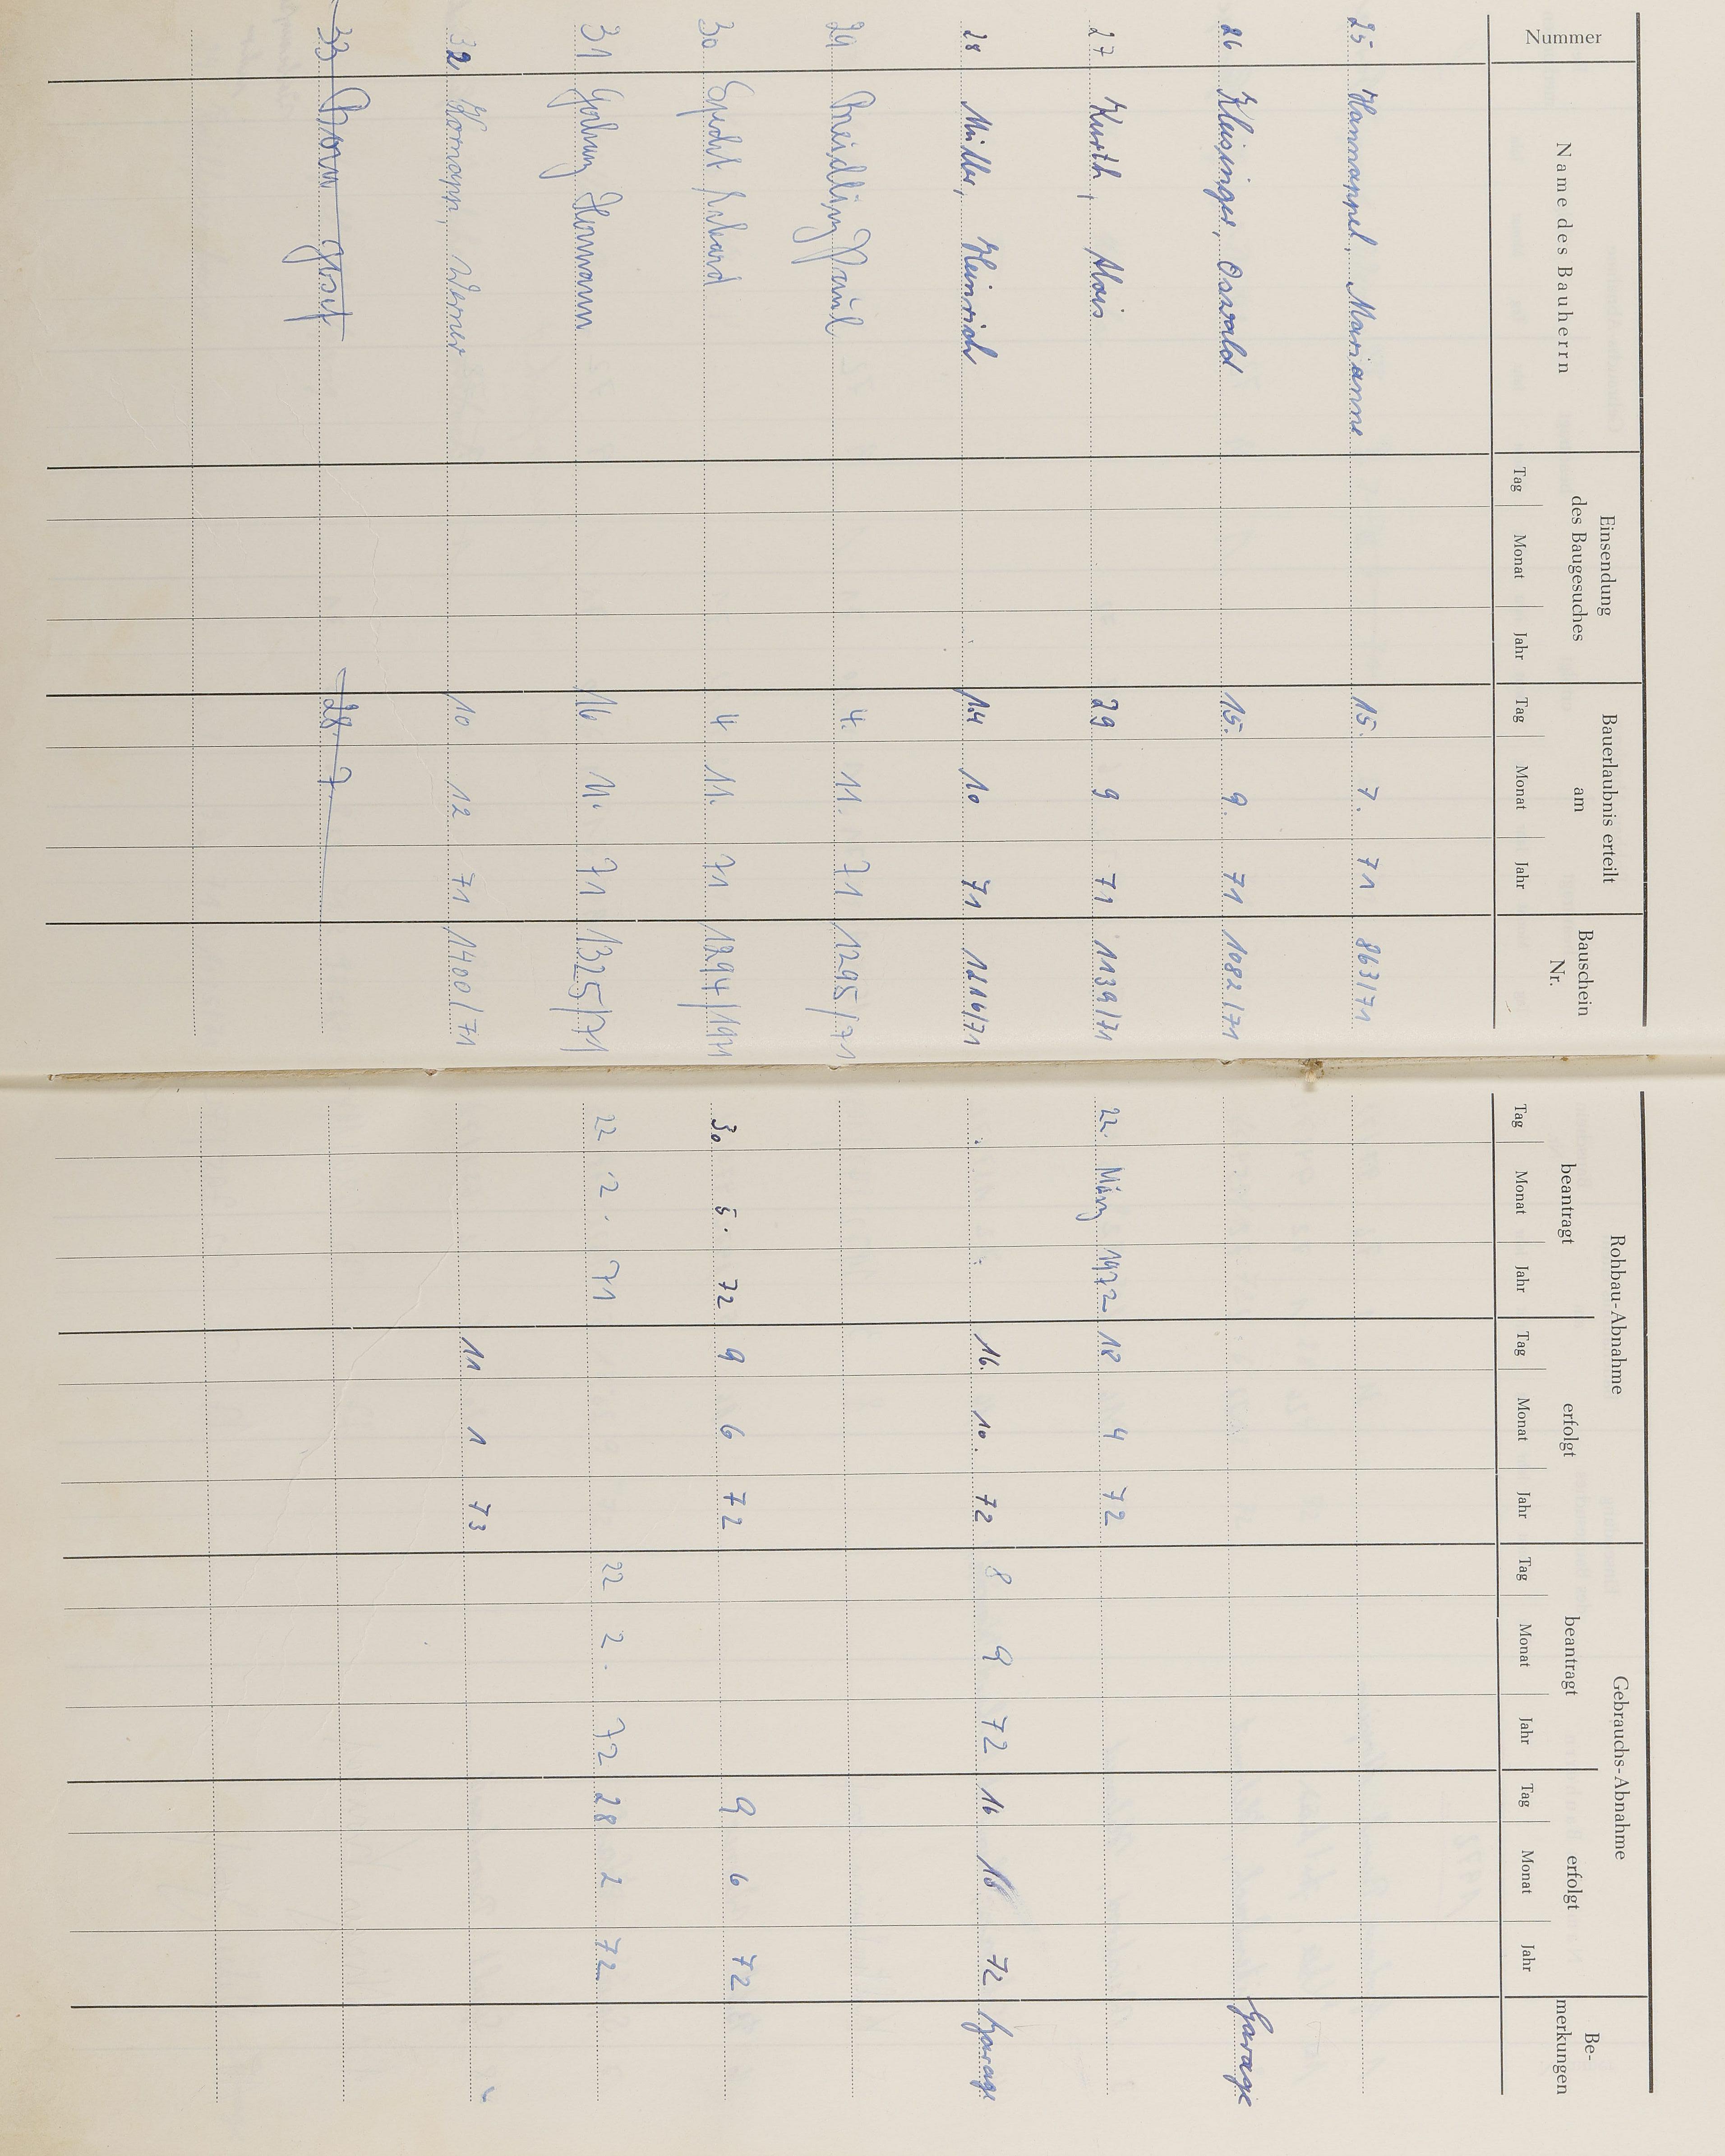 Nummer Name des Bauherrn Einsendung des Baugesuches Bauerlaubnis erteilt am Bauschein Nr. Rohbau-Abnahme Gebrauchs-Abnahme Be-merkungen
beantragt erfolgt beantragt erfolgt
Tag Monat Jahr Tag Monat Jahr Tag Monat Jahr Tag Monat Jahr Tag Monat Jahr Tag Monat Jahr
25 Hannappel, Marianne 15. 7. 71 863/71
26 Kleisinger, Oswald 15. 9. 71 1082/71 Garage
27 Kurth, Alois 29 9 71 1139/71 22. März 1972 18 4 72
28 Müller, Heinrich 14 10 71 1216/71 16. 10. 72 8 9 72 16 10 72 Garage
29 Paul 4. 11. 71 1295/71
30 4 11. 71 1294/1971 30. 5. 72 9 6 72 9 6 72
31 Hermann 16 11. 71 1325/71 22 2. 71 22 2. 72 28 2 72
32 Hormann, Werner 10 12 71 1400/71 11 1 73
33 Josef 28. 7.